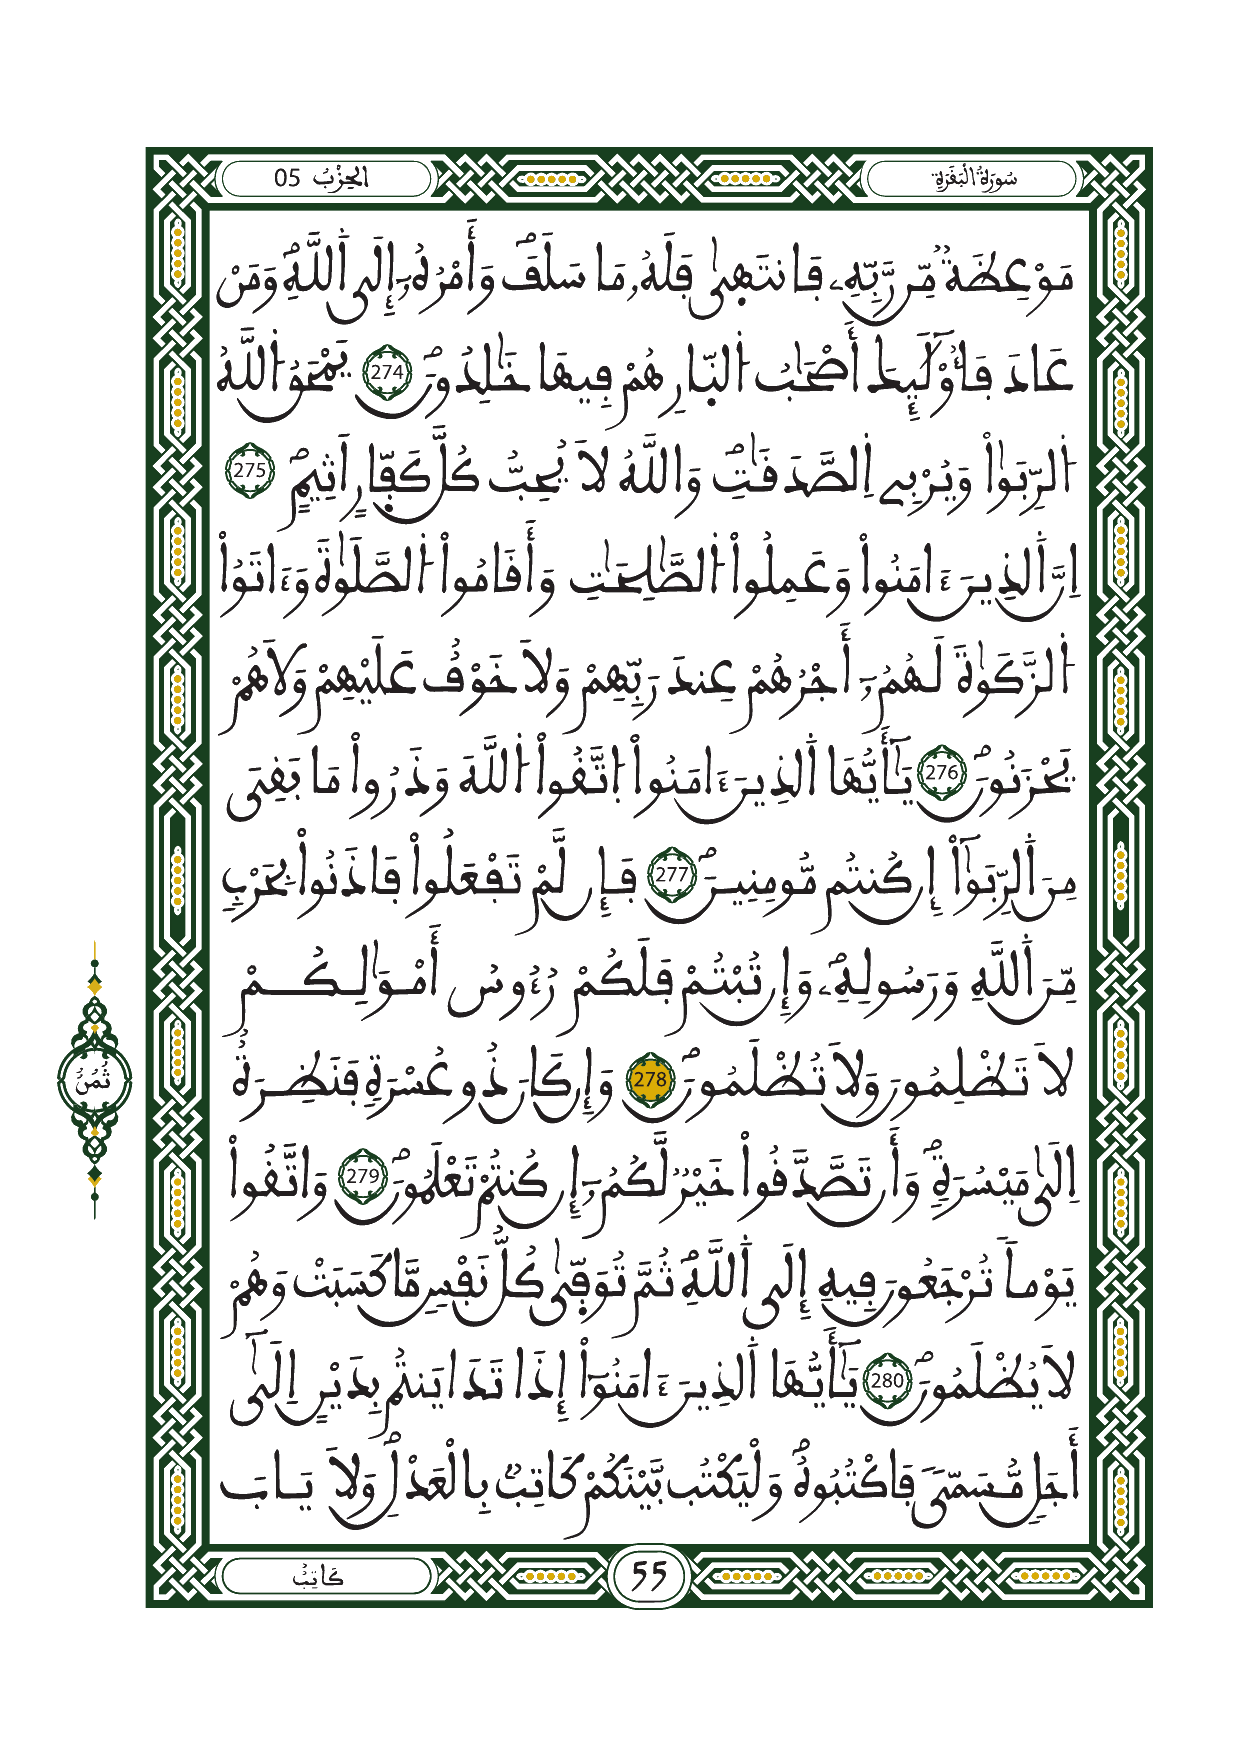 سُورَةُ الْبَقَرَةِ
الحِزْبُ 05
مَوْعِظَةٞ مِّن رَّبِّهِۦ فَانتَهىٰ فَلَهُۥ مَا سَلَفَۖ وَأَمْرُهُۥٓ إِلَى اَللَّهِۖ وَمَنْ
عَادَ فَأُوْلَٰٓئِكَ أَصْحَٰبُ اُلنّ۪ارِ هُمْ فِيهَا خَٰلِدُونَۖ 274 يَمْحَقُ اُللَّهُ
اُلرِّبَوٰاْ وَيُرْبِے اِلصَّدَقَٰتِۖ وَاللَّهُ لَا يُحِبُّ كُلَّ كَفّ۪ارٍ اَثِيمٍۖ 275
اِنَّ اَلذِينَ ءَامَنُواْ وَعَمِلُواْ اُلصَّٰلِحَٰتِ وَأَقَامُواْ اُلصَّلَوٰةَ وَءَاتَوُاْ
اُلزَّكَوٰةَ لَهُمُۥٓ أَجْرُهُمْ عِندَ رَبِّهِمْ وَلَا خَوْفٌ عَلَيْهِمْ وَلَا هُمْ
يَحْزَنُونَۖ 276 يَٰٓأَيُّهَا اَلذِينَ ءَامَنُواْ اُتَّقُواْ اُللَّهَ وَذَرُواْ مَا بَقِىَ
مِنَ اَلرِّبَوٰٓاْ إِن كُنتُم مُّومِنِينَۖ 277 فَإِن لَّمْ تَفْعَلُواْ فَاذَنُواْ بِحَرْبٖ
مِّنَ اَللَّهِ وَرَسُولِهِۦۖ وَإِن تُبْتُمْ فَلَكُمْ رُءُوسُ أَمْوَٰلِكُمْ
لَا تَظْلِمُونَ وَلَا تُظْلَمُونَۖ 278 وَإِن كَانَ ذُو عُسْرَةٖ فَنَظِرَةٌ
اِلَىٰ مَيْسُرَةٖۖ وَأَن تَصَّدَّقُواْ خَيْرٞ لَّكُمُۥٓ إِن كُنتُمْ تَعْلَمُونَۖ 279 وَاتَّقُواْ
يَوْماٗ تُرْجَعُونَ فِيهِ إِلَى اَللَّهِۖ ثُمَّ تُوَفّ۪ىٰ كُلُّ نَفْسٖ مَّا كَسَبَتْ وَهُمْ
لَا يُظْلَمُونَۖ 280 يَٰٓأَيُّهَا اَلذِينَ ءَامَنُوٓاْ إِذَا تَدَايَنتُم بِدَيْنٍ اِلَىٰٓ
أَجَلٖ مُّسَمّىٗ فَاكْتُبُوهُۖ وَلْيَكْتُب بَّيْنَكُمْ كَاتِبُۢ بِالْعَدْلِۖ وَلَا يَابَ
ثُمُنُ
كَاتِبٌ
55